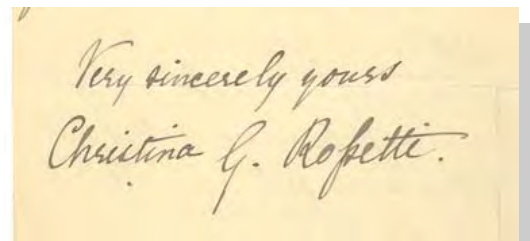 Very sincerely yours
Christina G. Roſsetti.